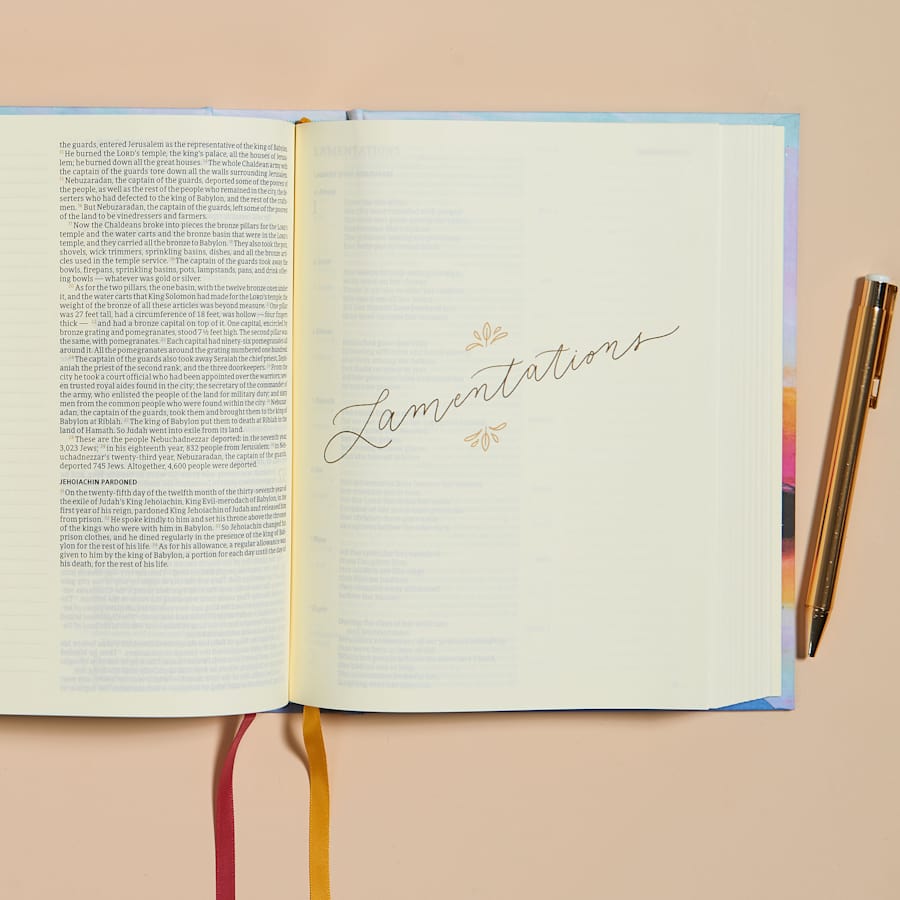 the guards, entered Jerusalem as the representative of the king of Babylon.
13 He burned the LORD's temple, the king's palace, all the houses of Jerusa-
lem; he burned down all the great houses. 14 The whole Chaldean army with
the captain of the guards tore down all the walls surrounding Jerusalem.
15 Nebuzaradan, the captain of the guards, deported some of the poorest of
the people, as well as the rest of the people who remained in the city, the de-
serters who had defected to the king of Babylon, and the rest of the crafts-
men. 16 But Nebuzaradan, the captain of the guards, left some of the poorest
of the land to be vinedressers and farmers.
17 Now the Chaldeans broke into pieces the bronze pillars for the LORD's
temple and the water carts and the bronze basin that were in the LORD's
temple, and they carried all the bronze to Babylon. 18 They also took the pots,
shovels, wick trimmers, sprinkling basins, dishes, and all the bronze arti-
cles used in the temple service. 19 The captain of the guards took away the
bowls, firepans, sprinkling basins, pots, lampstands, pans, and drink offer-
ing bowls — whatever was gold or silver.
20 As for the two pillars, the one basin, with the twelve bronze oxen under
it, and the water carts that King Solomon had made for the LORD's temple, the
weight of the bronze of all these articles was beyond measure. 21 One pillar
was 27 feet tall, had a circumference of 18 feet, was hollow — four fingers
thick — 22 and had a bronze capital on top of it. One capital, encircled by
bronze grating and pomegranates, stood 7½ feet high. The second pillar was
the same, with pomegranates. 23 Each capital had ninety-six pomegranates all
around it. All the pomegranates around the grating numbered one hundred.
24 The captain of the guards also took away Seraiah the chief priest, Zeph-
aniah the priest of the second rank, and the three doorkeepers. 25 From the
city he took a court official who had been appointed over the warriors; sev-
en trusted royal aides found in the city; the secretary of the commander of
the army, who enlisted the people of the land for military duty; and sixty
men from the common people who were found within the city. 26 Nebuzar-
adan, the captain of the guards, took them and brought them to the king of
Babylon at Riblah. 27 The king of Babylon put them to death at Riblah in the
land of Hamath. So Judah went into exile from its land.
28 These are the people Nebuchadnezzar deported: in the seventh year,
3,023 Jews; 29 in his eighteenth year, 832 people from Jerusalem; 30 in Neb-
uchadnezzar's twenty-third year, Nebuzaradan, the captain of the guards,
deported 745 Jews. Altogether, 4,600 people were deported.
JEHOIACHIN PARDONED
31 On the twenty-fifth day of the twelfth month of the thirty-seventh year of
the exile of Judah's King Jehoiachin, King Evil-merodach of Babylon, in the
first year of his reign, pardoned King Jehoiachin of Judah and released him
from prison. 32 He spoke kindly to him and set his throne above the thrones
of the kings who were with him in Babylon. 33 So Jehoiachin changed his
prison clothes, and he dined regularly in the presence of the king of Bab-
ylon for the rest of his life. 34 As for his allowance, a regular allowance was
given to him by the king of Babylon, a portion for each day until the day of
his death, for the rest of his life.
Lamentations